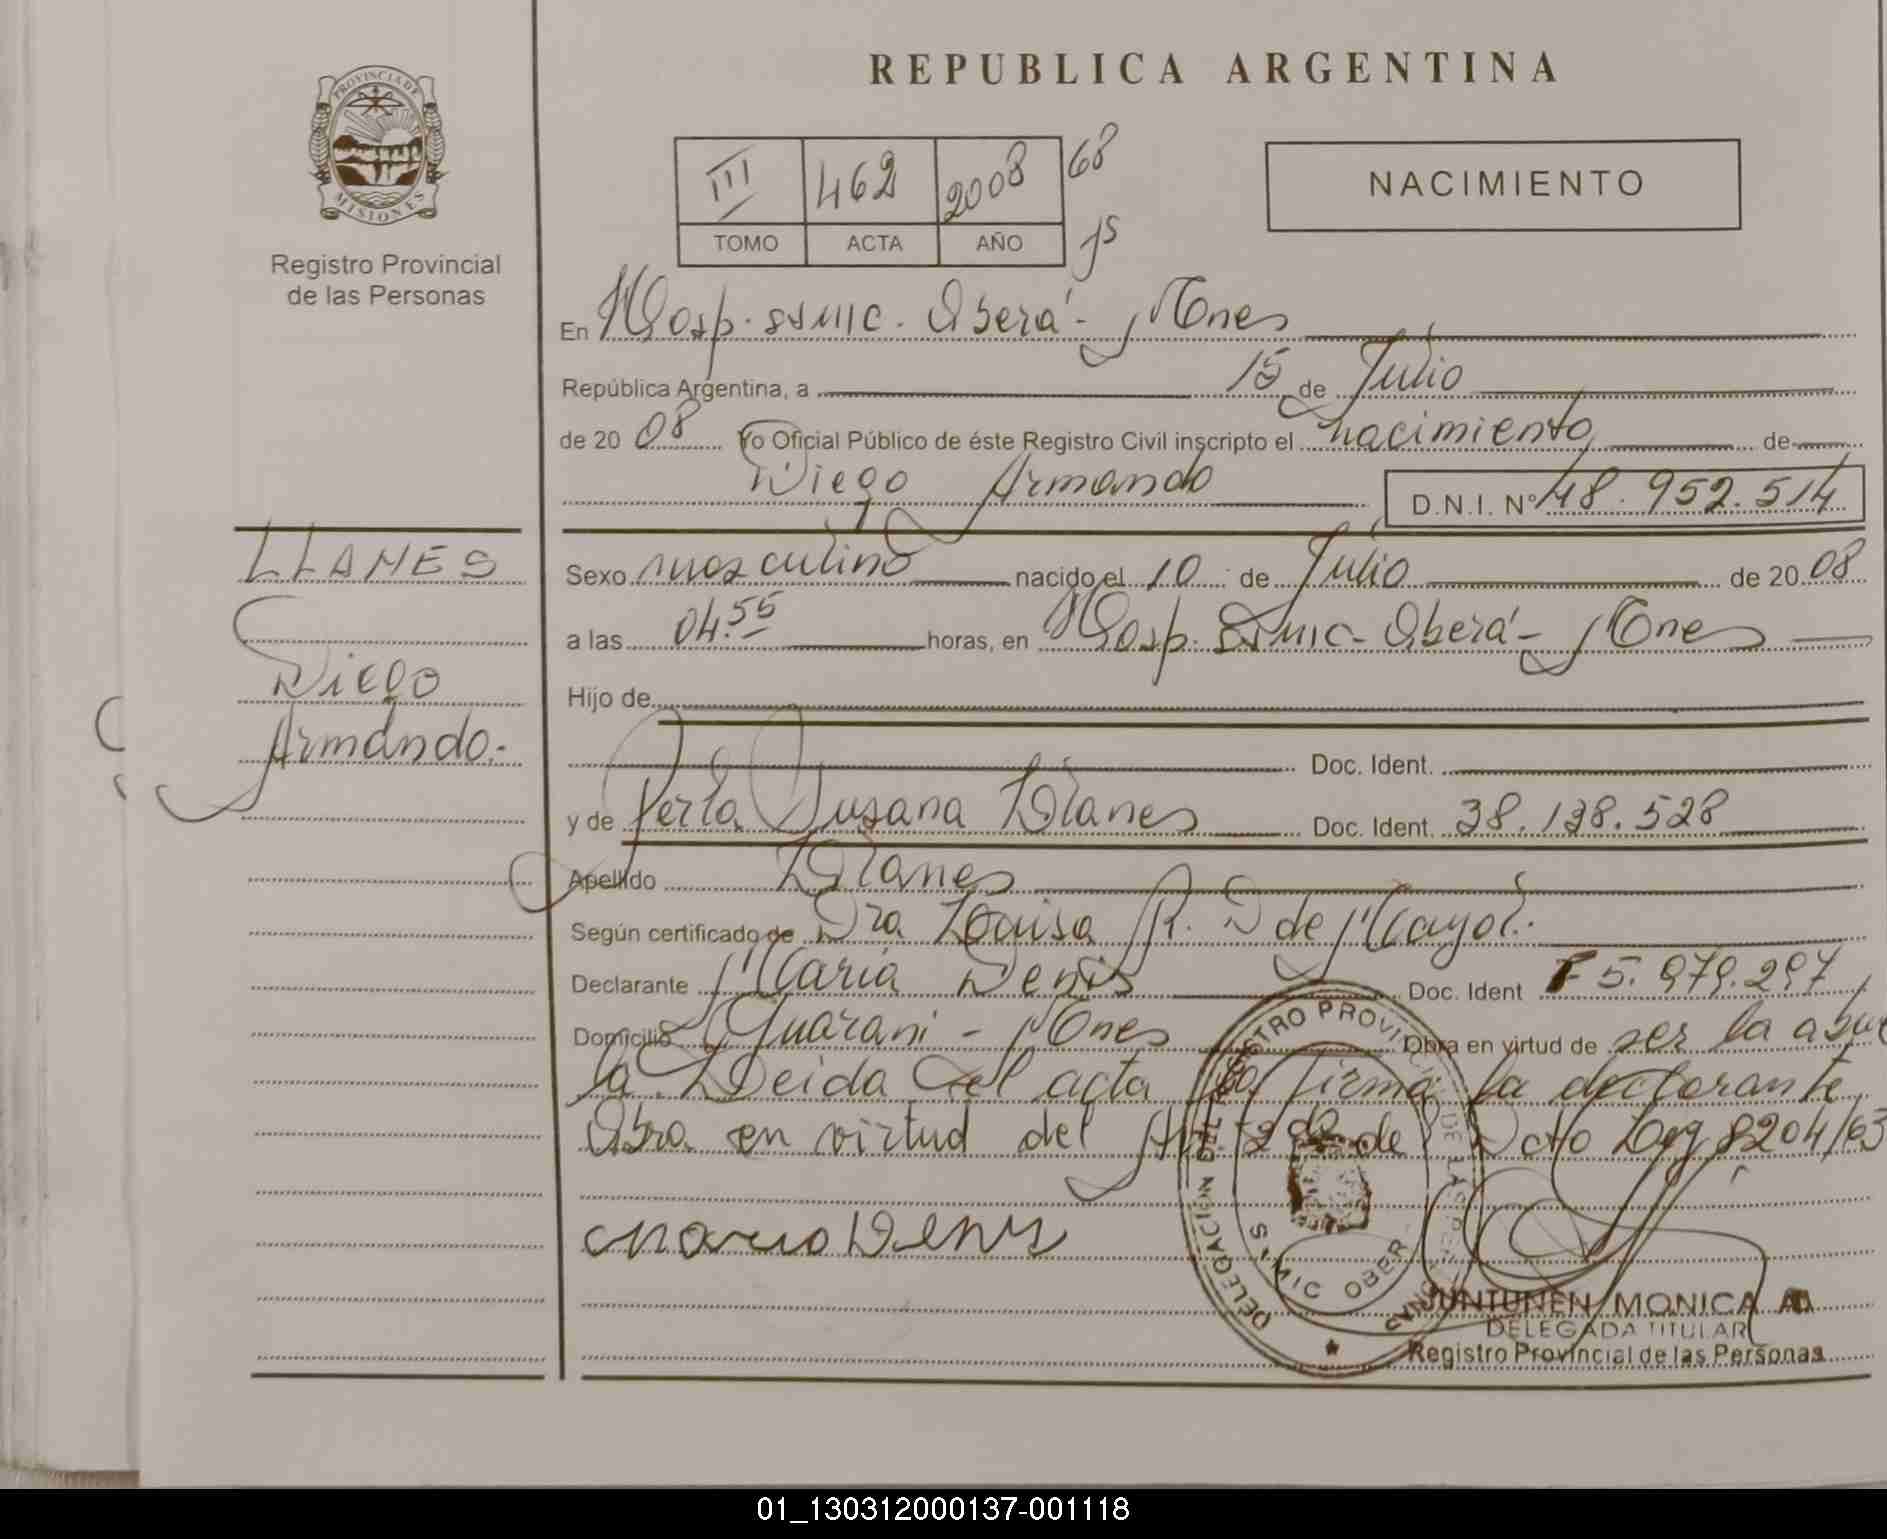 REPUBLICA ARGENTINA
PROVINCIA DE MISIONES
Registro Provincial
de las Personas
III 462 2008 68
TOMO ACTA AÑO 15
NACIMIENTO
En Hosp. SSMIC. Oberá - Mnes
República Argentina, a 15 de Julio
de 20 08 Yo Oficial Público de éste Registro Civil inscripto el nacimiento de
Diego Armando D.N.I. Nº 48.952.514
LLANES
Diego
Armando.-
Sexo masculino nacido el 10 de Julio de 20 08
a las 04.55 horas, en Hosp. SSMIC - Oberá - Mnes
Hijo de
Doc. Ident.
y de Perla Susana Llanes Doc. Ident. 38.138.528
Apellido Llanes
Según certificado de Dra Louisa R. D de Mayol.
Declarante Maria Denis Doc. Ident F 5.979.297
Domicilio Guarani - Mnes Obra en virtud de ser la abue
la. Leida del acta la firma la declarante
Obra en virtud del Art. 2 de de Dcto Ley 8204/63
Maria Denis
DELEGACION DEL REGISTRO PROVINCIAL DE LAS PERSONAS
JUNTUNEN MONICA A
DELEGADA TITULAR
Registro Provincial de las Personas
01_130312000137-001118